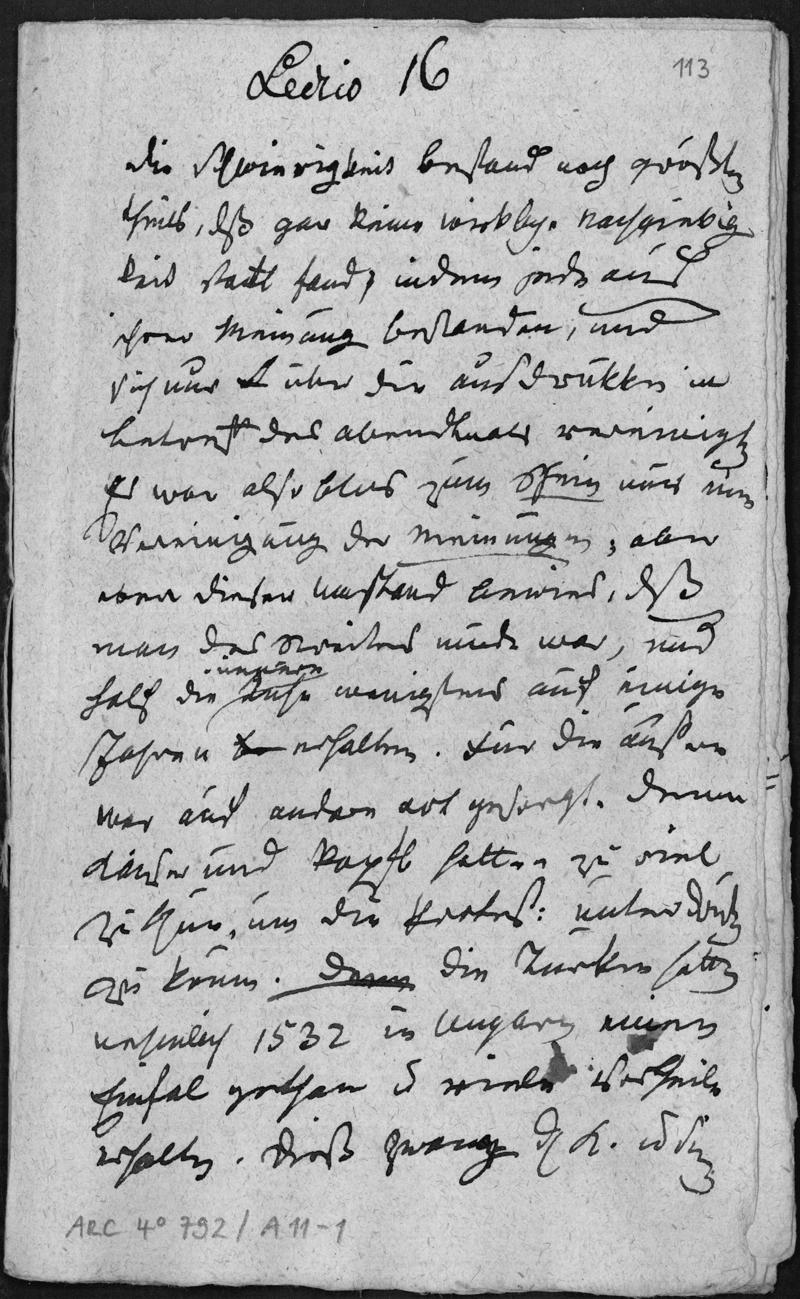 Lectio 16
113
die Schwierigkeit bestand noch größten
theils, dß gar keine wirkliche Nachgiebig
keit statt fand, indem jede auf
ihrer Meinung bestanden, und
sich nur über die ausdrükke in
betreff des abendmals vereinigten
Es war also blos zum Schein nur eine
Vereinigung der Meinungen, aber
eben dieser Umstand bewies, dß
man des Streites müde war, und
half die innere Ruhe wenigstens auf einige
Jahre erhalten. Für die äußere
war auf andere art gesorgt. Denn
Kaiser und Papst hatten zu viel
zu thun, um die Protest: unterdrük
zu könn. Denn die Türken hatten
nehmlich 1532 in Ungarn einen
Einfal gethan u viele Vortheile
erhalten. Dieß zwang d K.
ARC 4° 792 / A 11-1